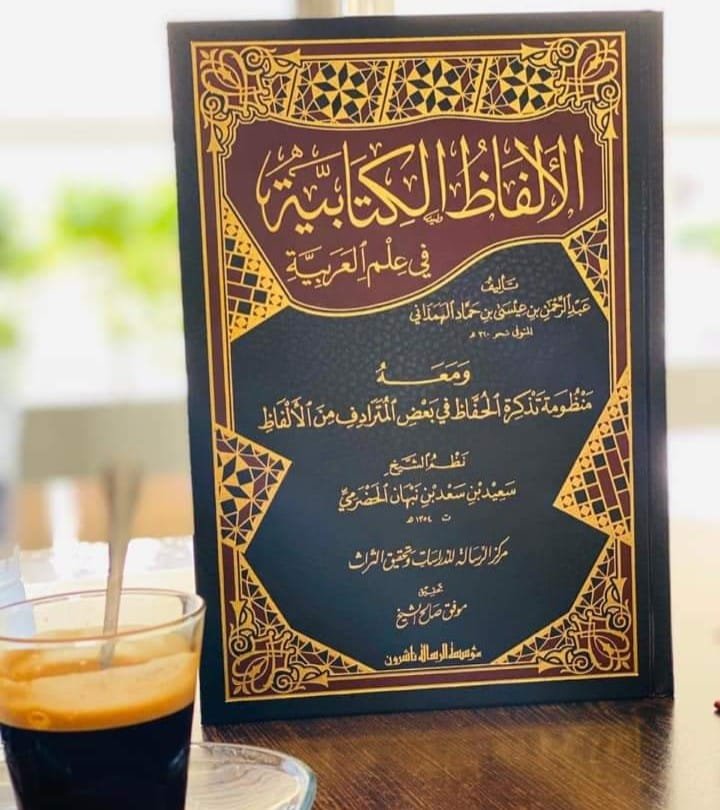 الألفاظ الكتابية
في علم العربية
تأليف
عبد الرحمن بن عيسى بن حماد الهمذاني
المتوفى نحو ٣٢٠ هـ
ومعه
منظومة تذكرة الحفاظ في بعض المترادف من الألفاظ
نظم الشيخ
سعيد بن سعد بن نبهان الحضرمي
ت ١٣٥٤ هـ
مركز الرسالة للدراسات وتحقيق التراث
تحقيق
موفق صالح الشيخ
مؤسسة الرسالة ناشرون